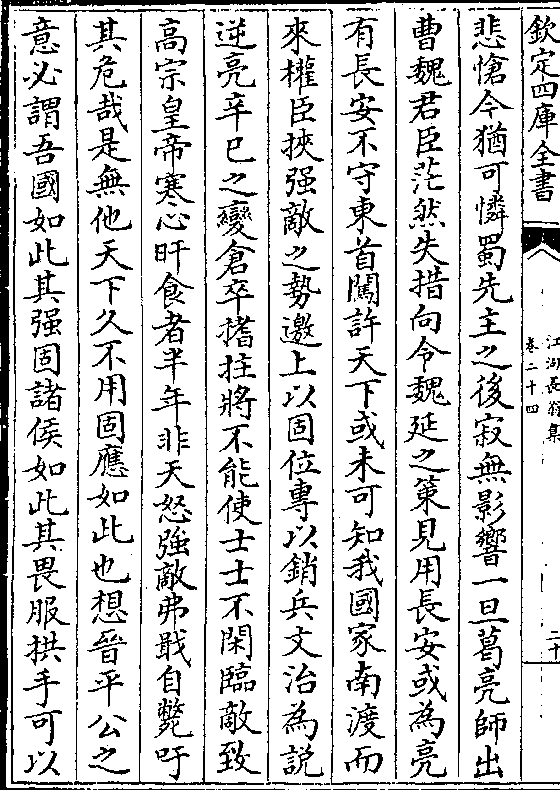 欽定四庫全書
江湖長翁集
卷二十四
二十
悲愴今猶可憐蜀先主之後寂無影響一旦葛亮師出
曹魏君臣茫然失措向令魏延之策見用長安或為亮
有長安不守東首闖許天下或未可知我國家南渡而
來權臣挾强敵之勢邀上以固位專以銷兵文治為說
逆亮辛巳之變倉卒搘拄將不能使士士不閑臨敵致
高宗皇帝寒心旰食者半年非天怒強敵弗戢自斃吁
其危哉是無他天下久不用固應如此也想晉平公之
意必謂吾國如此其强固諸侯如此其畏服拱手可以